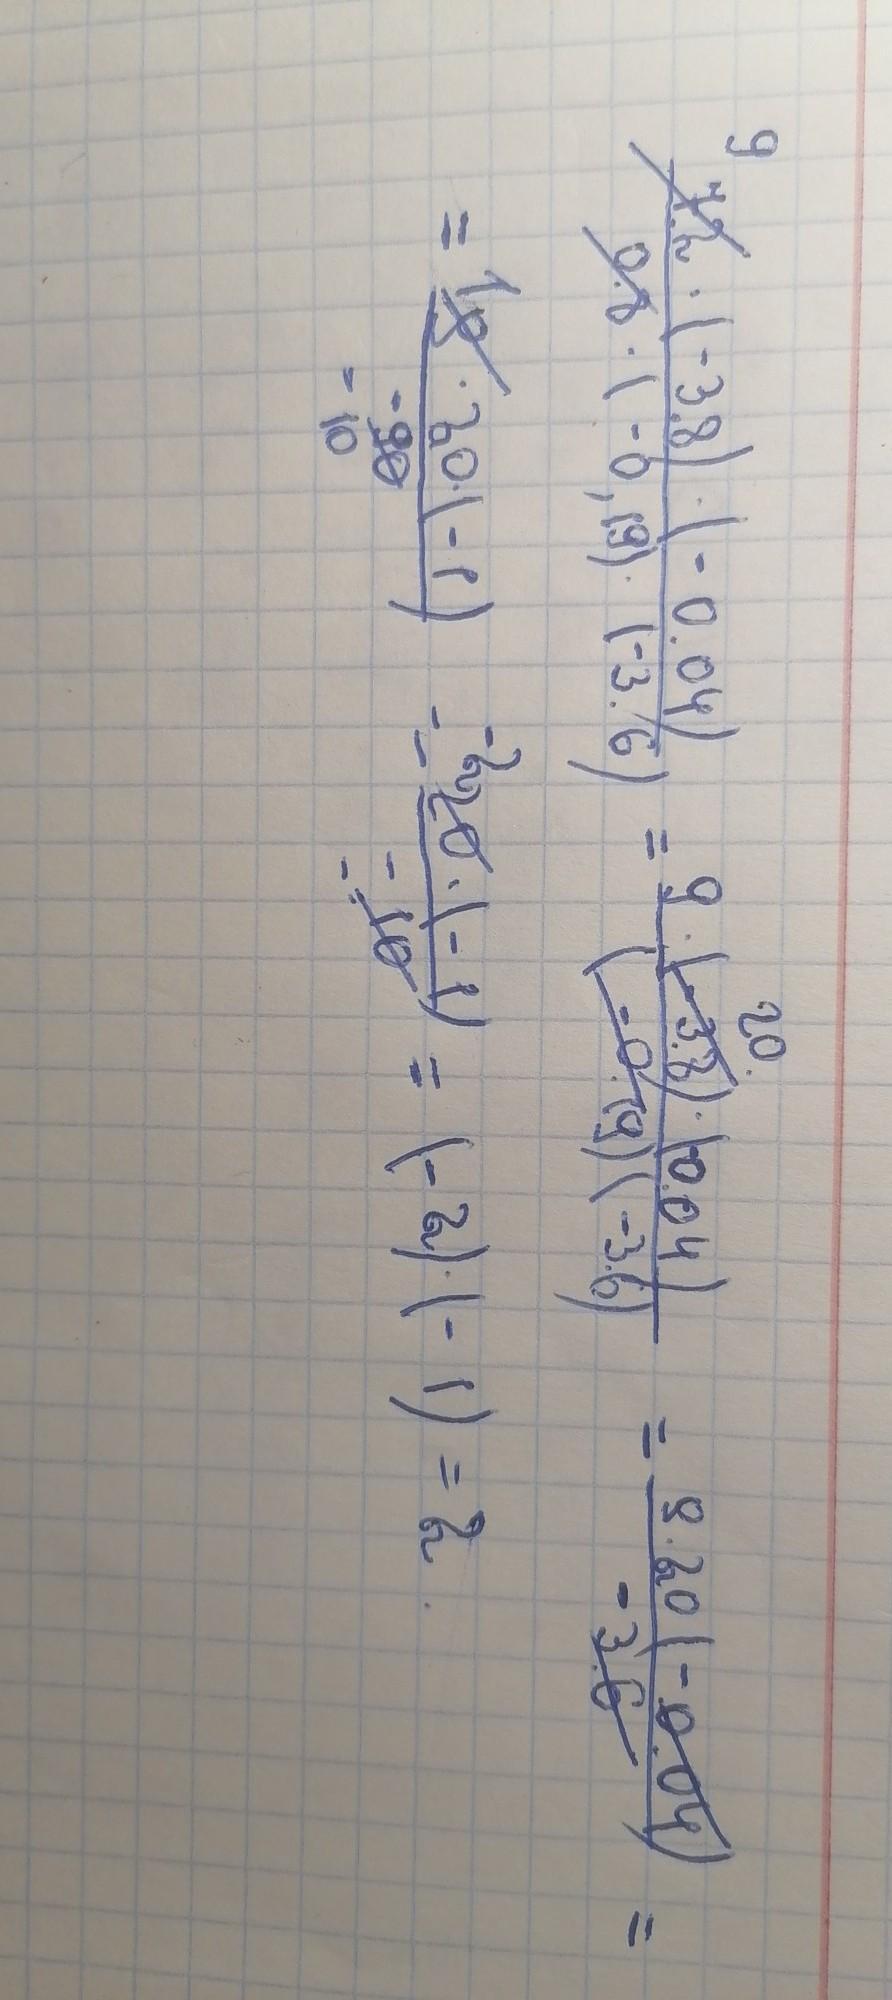 9
7.2 · (-3.8) · (-0.04) / 0.8 · (-0,19) · (-3.6) = 9 · (-3.8) · (0.04) / (-0.19)(-3.6) = 9 · 20 (-0.04) / -3.6 =
20.
= 1 9 · 20 · (-1) / -90 -10 = -2 20 · (-1) / -10 = (-2) · (-1) = 2.